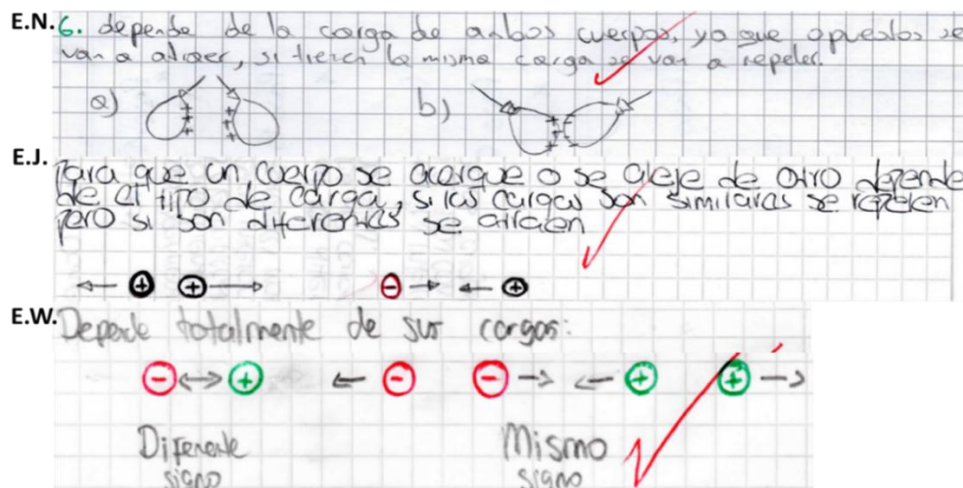 E.N. 6. depende de la carga de ambos cuerpos, ya que opuestos se
van a atraer, si tienen la misma carga se van a repeler.
a) b)
E.J. Para que un cuerpo se acerque o se aleje de otro depende
de el tipo de carga, si las cargas son similares se repelen
pero si son diferentes se atraen
← + + → - → ← +
E.W. Depende totalmente de sus cargas:
- ↔ + ← - - → ← + + →
Diferente Mismo
signo signo